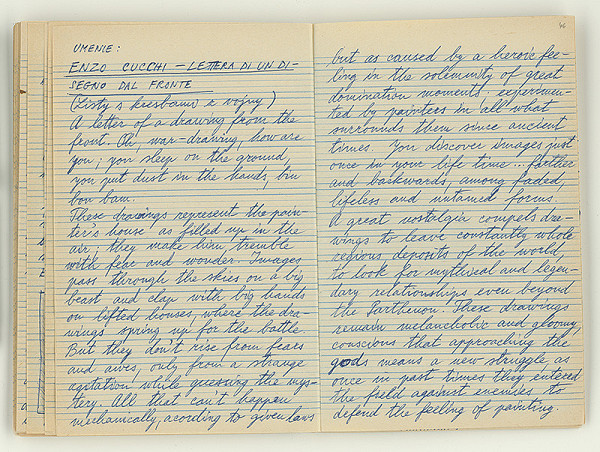 UMENIE:
ENZO CUCCHI – LETTERA DI UN DI-
SEGNO DAL FRONTE
(Listy s kresbami z vojny)
A letter of a drawing from the
front. Oh, war-drawing, how are
you; you sleep on the ground,
you put dust in the hands, bim
bom bam.
These drawings represent the pain-
ter's house as filled up in the
air; they make him tremble
with fear and wonder. Images
pass through the skies on a big
beast and clap with big hands
on lifted houses, where the dra-
wings spring up for the battle.
But they don't rise from fears
and awes, only from a strange
agitation while guessing the mys-
tery. All that can't happen
mechanically, acording to given laws
46
but as caused by a heroic fee-
ling in the solemnity of great
domination moments experimen-
ted by painters in all what
surrounds them since ancient
times. You discover images just
once in your life time... farther
and backwards, among faded,
lifeless and untamed forms.
A great nostalgia compels dra-
wings to leave constantly whole
regions deposits of the world,
to look for mythical and legen-
dary relationships even beyond
the Parthenon. These drawings
remain melancholic and gloomy,
conscious that approaching the
gods means a new struggle, as
once in past times they entered
the field against enemies to
defend the feeling of painting.